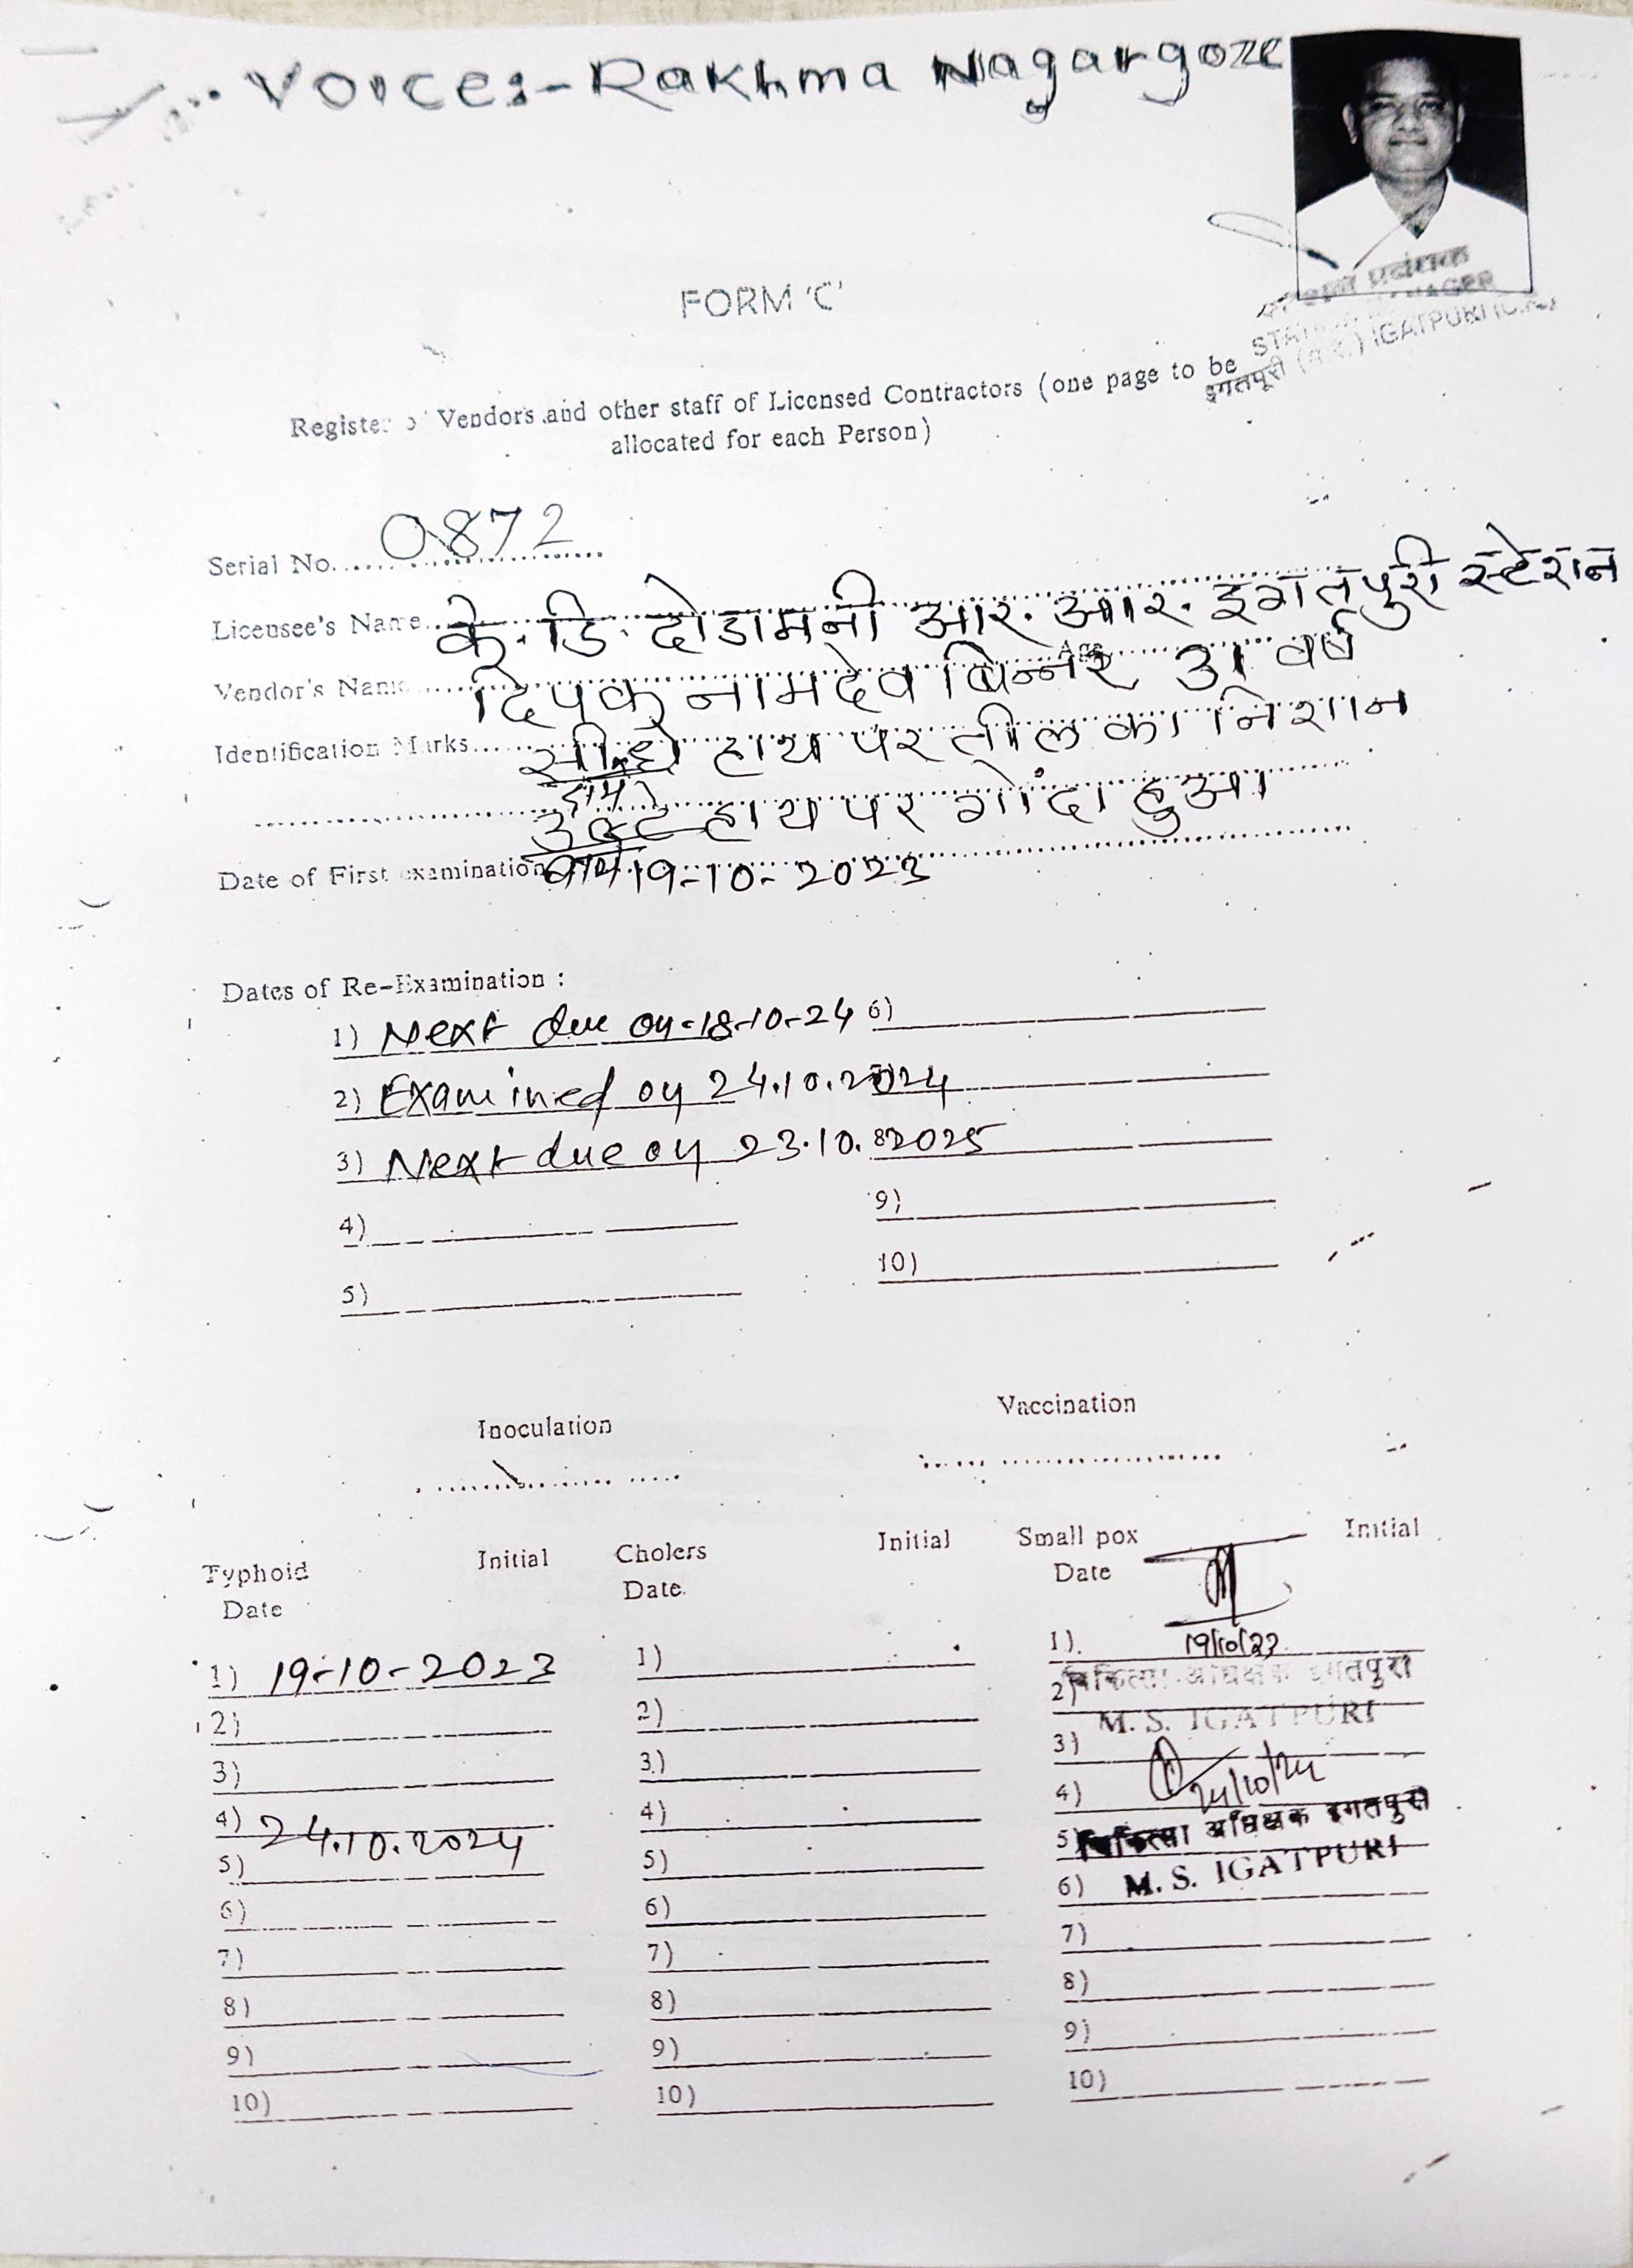 Voice:- Rakhma Nagargoze
FORM 'C'
STATION MANAGER
इगतपूरी (म.रे.) IGATPURI (C.R.)
Register of Vendors and other staff of Licensed Contractors (one page to be
allocated for each Person)
Serial No. 0872
Licensee's Name के. डि. दोडामनी आर. आर. इगतपुरी स्टेशन
Vendor's Name दिपक नामदेव बिन्नर Age 31 वर्ष
Identification Marks सीधे हाथ पर तील का निशान
उल्टे हाथ पर गोंदा हुआ
Date of First examination 19-10-2023
Dates of Re-Examination :
1) Next due on-18-10-24 6)
2) Examined on 24.10.2024
3) Next due on 23.10.2025 8)
4) 9)
5) 10)
Inoculation Vaccination
Typhoid Date Initial Cholers Date. Initial Small pox Date Initial
1) 19-10-2023 1) 1) 19/10/23
2) 2) 2) चिकित्सा अधिक्षक इगतपुरी
M. S. IGATPURI
3) 3) 3)
4) 24.10.2024 4) 4) 24/10/24
5) 5) 5) चिकित्सा अधिक्षक इगतपुरी
6) 6) 6) M. S. IGATPURI
7) 7) 7)
8) 8) 8)
9) 9) 9)
10) 10) 10)